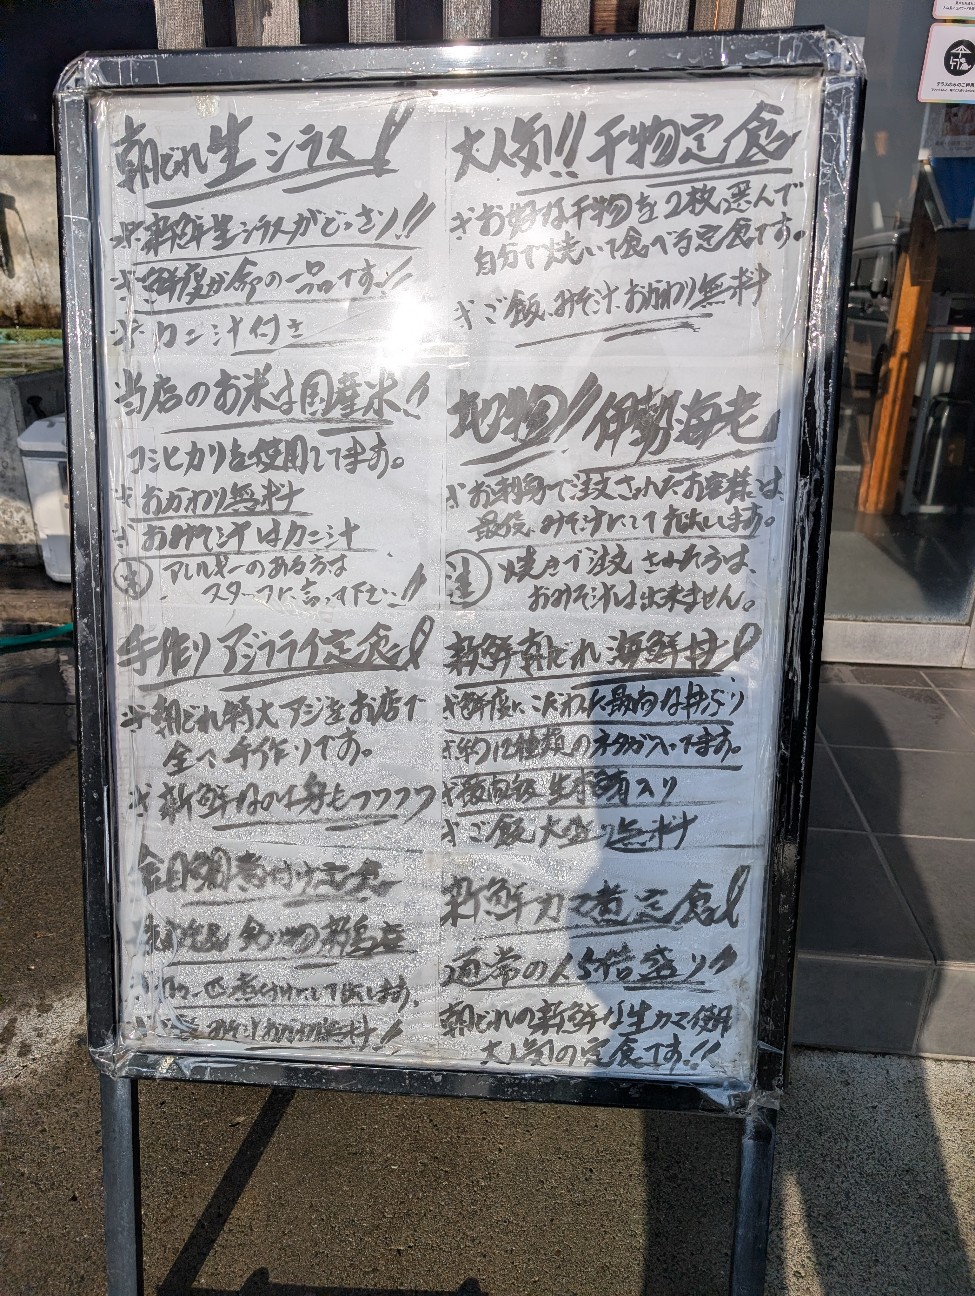 朝どれ生シラス!
※新鮮生シラスがどっさり!!
※鮮度が命の一品です!!
※カニ汁付き
当店のお米は国産米!!
コシヒカリを使用してます。
※おかわり無料
※おみそ汁はカニ汁
アレルギーのある方は
スタッフに言って下さい!!
手作りアジフライ定食!
※朝どれ特大アジをお店で
全て手作りです。
※新鮮なので身もフワフワ
金目鯛煮付け定食
一匹煮付けにして出します。
おかわり無料!!
大人気!!干物定食
※お好きな干物を2枚選んで
自分で焼いて食べる定食です。
※ご飯、みそ汁おかわり無料
地物!!伊勢海老
※お刺身で注文されたお客様は、
最後、みそ汁にしてお出しします。
注 焼きで注文された方は、
おみそ汁は出来ません。
新鮮朝どれ海鮮丼!
※鮮度にこだわった最高な丼ぶり
※約12種類のネタが入ってます。
生本鮪入り
※ご飯大盛り無料
新鮮カマ煮定食!
通常の人5倍盛り!!
朝どれの新鮮な生カマ使用
大人気の定食です!!